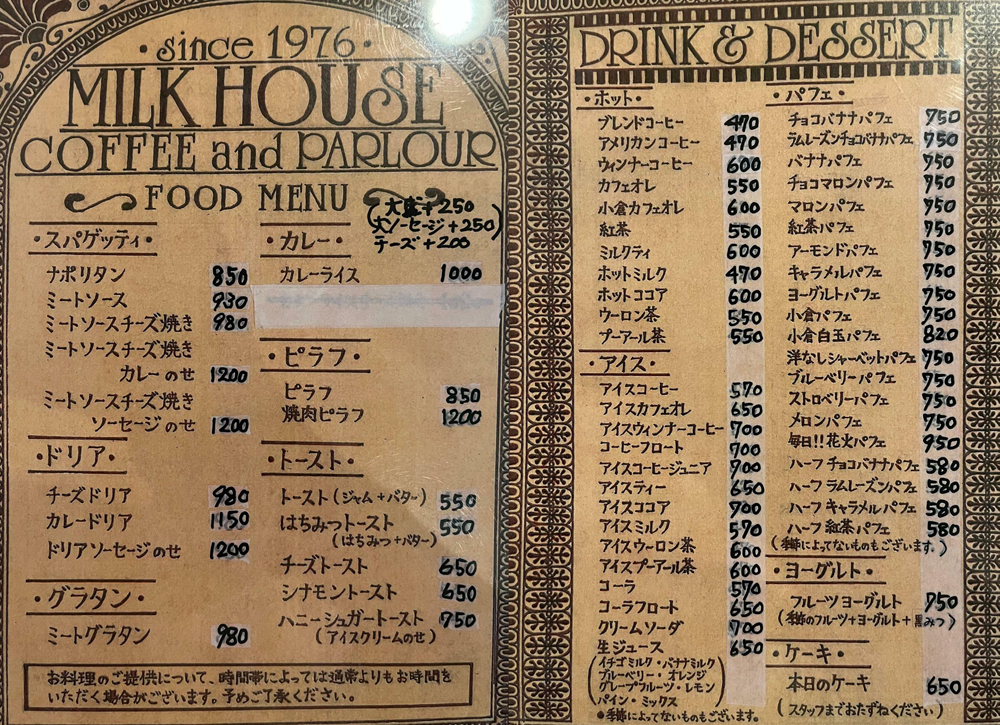 ・since 1976・
MILK HOUSE
COFFEE and PARLOUR
FOOD MENU
・スパゲッティ・
ナポリタン 850
ミートソース 930
ミートソースチーズ焼き 980
ミートソースチーズ焼き
カレーのせ 1200
ミートソースチーズ焼き
ソーセージのせ 1200
・ドリア・
チーズドリア 980
カレードリア 1150
ドリアソーセージのせ 1200
・グラタン・
ミートグラタン 980
(大盛+250
大ソーセージ+250)
チーズ+200
・カレー・
カレーライス 1000
・ピラフ・
ピラフ 850
焼肉ピラフ 1200
・トースト・
トースト(ジャム+バター) 550
はちみつトースト 550
(はちみつ+バター)
チーズトースト 650
シナモントースト 650
ハニーシュガートースト 750
(アイスクリームのせ)
お料理のご提供について、時間帯によっては通常よりもお時間を
いただく場合がございます。予めご了承ください。
DRINK & DESSERT
・ホット・
ブレンドコーヒー 470
アメリカンコーヒー 470
ウィンナーコーヒー 600
カフェオレ 550
小倉カフェオレ 600
紅茶 550
ミルクティ 600
ホットミルク 470
ホットココア 600
ウーロン茶 550
プーアール茶 550
・アイス・
アイスコーヒー 570
アイスカフェオレ 650
アイスウィンナーコーヒー 700
コーヒーフロート 700
アイスコーヒージュニア 700
アイスティー 650
アイスココア 700
アイスミルク 570
アイスウーロン茶 600
アイスプーアール茶 600
コーラ 570
コーラフロート 650
クリームソーダ 700
生ジュース 650
(イチゴミルク・バナナミルク)
ブルーベリー・オレンジ
グレープフルーツ・レモン
パイン・ミックス
●季節によってないものもございます。
・パフェ・
チョコバナナパフェ 750
ラムレーズンチョコバナナパフェ 750
バナナパフェ 750
チョコマロンパフェ 750
マロンパフェ 750
紅茶パフェ 750
アーモンドパフェ 750
キャラメルパフェ 750
ヨーグルトパフェ 750
小倉パフェ 750
小倉白玉パフェ 820
洋なしシャーベットパフェ 750
ブルーベリーパフェ 750
ストロベリーパフェ 750
メロンパフェ 750
毎日!!花火パフェ 950
ハーフ チョコバナナパフェ 580
ハーフ ラムレーズンパフェ 580
ハーフ キャラメルパフェ 580
ハーフ 紅茶パフェ 580
(季節によってないものもございます。)
・ヨーグルト・
フルーツヨーグルト 750
(季節のフルーツ+ヨーグルト+黒みつ)
・ケーキ・
本日のケーキ 650
(スタッフまでおたずねください)